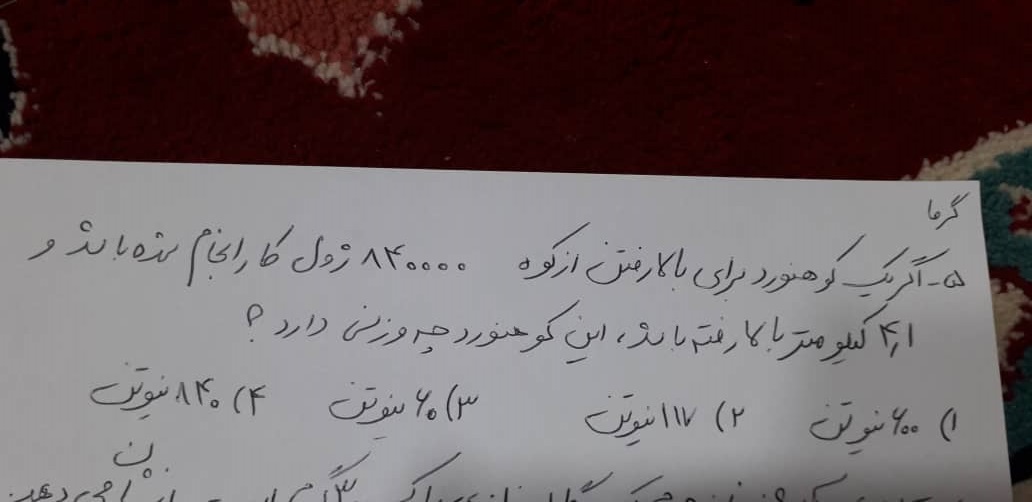 گرما
۵- اگر یک کوهنورد برای بالا رفتن از کوه ۸۴۰۰۰۰ ژول کار انجام داده باشد و
۱,۴ کیلومتر بالا رفته باشد، این کوهنورد چه وزنی دارد ؟
۱) ۶۰۰ نیوتن ۲) ۱۱۷ نیوتن ۳) ۶۰ نیوتن ۴) ۸۴۰ نیوتن